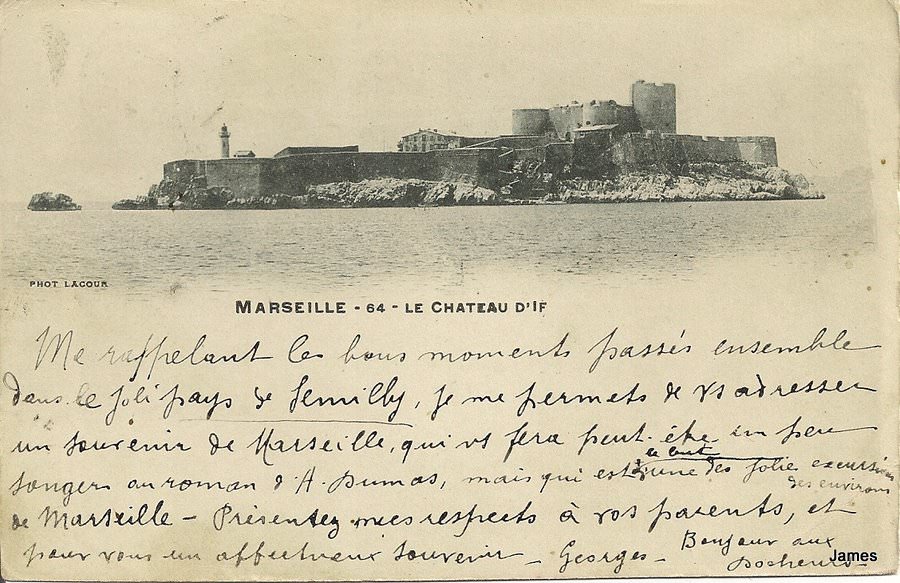 PHOT LACOUR
MARSEILLE - 64 - LE CHATEAU D'IF
Me rappelant les bons moments passés ensemble
dans le joli pays de Semilly, je me permets de vs adresser
un souvenir de Marseille, qui vs fera peut-être un peu
le but
songer au roman d'A. Dumas, mais qui est d'une des jolie excursions
des environs
de Marseille - Présentez mes respects à vos parents, et
pour vous un affectueux souvenir - Georges -
Bonjour aux
James